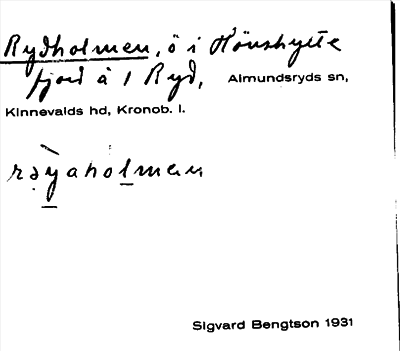 Rydholmen, ö i Hönshylte
fjord å 1 Ryd, Almundsryds sn,
Kinnevalds hd, Kronob. l.
Sigvard Bengtson 1931